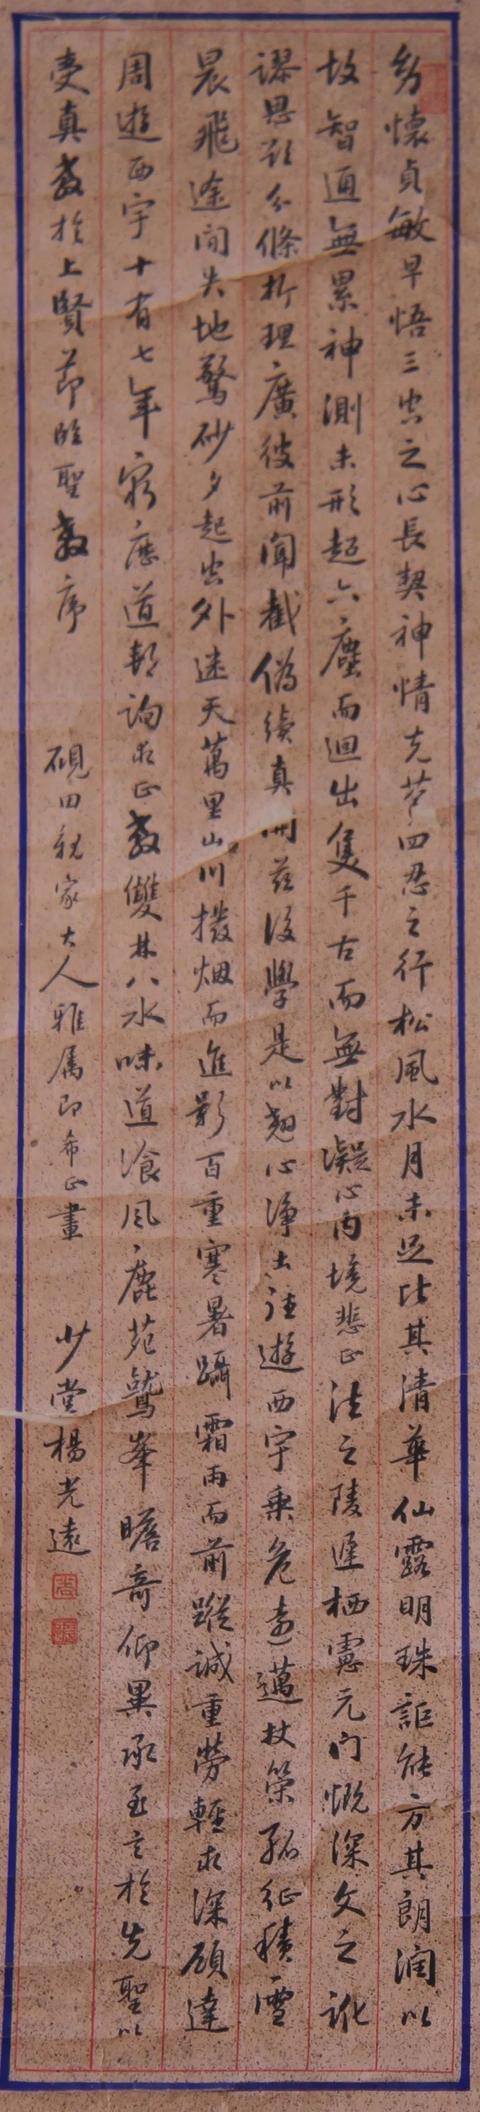 幼懷貞敏早悟三空之心長契神情先苞四忍之行松風水月未足比其清華仙露明珠詎能方其朗潤以
故智通無累神測未形超六塵而迥出隻千古而無對凝心內境悲正法之陵遲栖慮元門慨深文之訛
謬思欲分條析理廣彼前聞截偽續真開茲後學是以翹心淨土往遊西宇乘危遠邁杖策孤征積雪
晨飛途間失地驚砂夕起空外迷天萬里山川撥烟而進影百重寒暑躡霜雨而前蹤誠重勞輕求深願達
周遊西宇十有七年窮歷道邦詢求正教雙林八水味道飡風鹿苑鷲峯瞻奇仰異承至言於先聖以
受真教於上賢節臨聖教序
硯田親家大人雅属即希正畫
少堂楊光遠